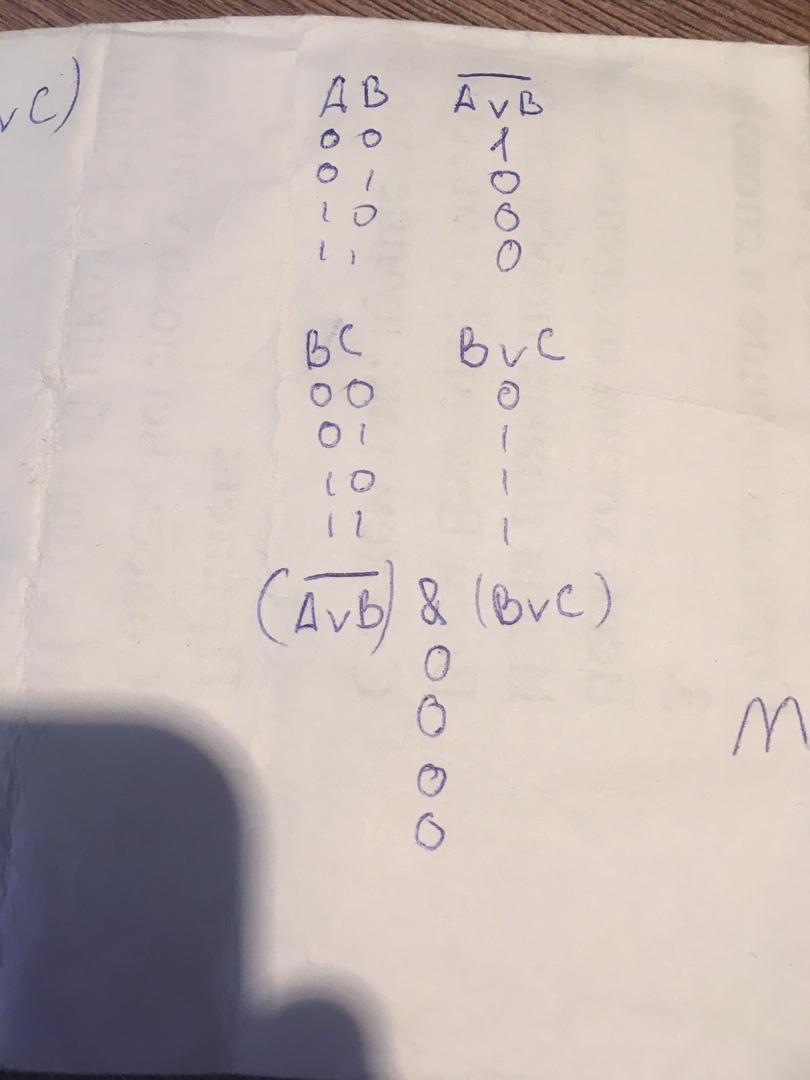 vC)
A B  A̅ ̅v̅ ̅B̅
0 0  1
0 1  0
1 0  0
1 1  0
B C  B v C
0 0  0
0 1  1
1 0  1
1 1  1
(A̅v̅B̅) & (BvC)
0
0
M
0
0